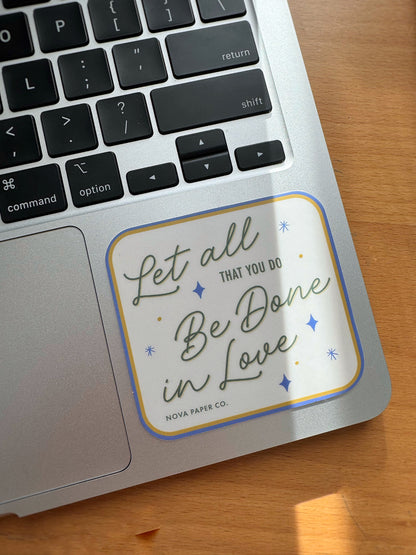 P
{
[
}
]
return
L
:
;
"
'
shift
<
,
>
.
?
/
⌘
command
⌥
option
Let all
THAT YOU DO
Be Done
in Love
NOVA PAPER CO.